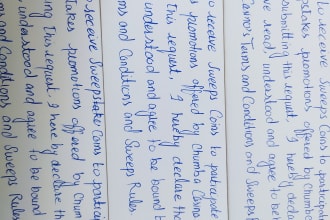 to receive Sweeps Coins to participate
promotions offered by Chumba
submitting this request, I hereby declare
read, understood and agree to be
Casino's Terms and Conditions and Sweeps
receive Sweeps Coins to participate
promotions offered by Chumba Casino
this request, I hereby declare
understood and agree to be bound
and Conditions and Sweeps Rules.
receive Sweepstake Coins to
promotions offered by
this request, I here by declare
understood and agree to be bound
and Conditions and Sweeps Rules